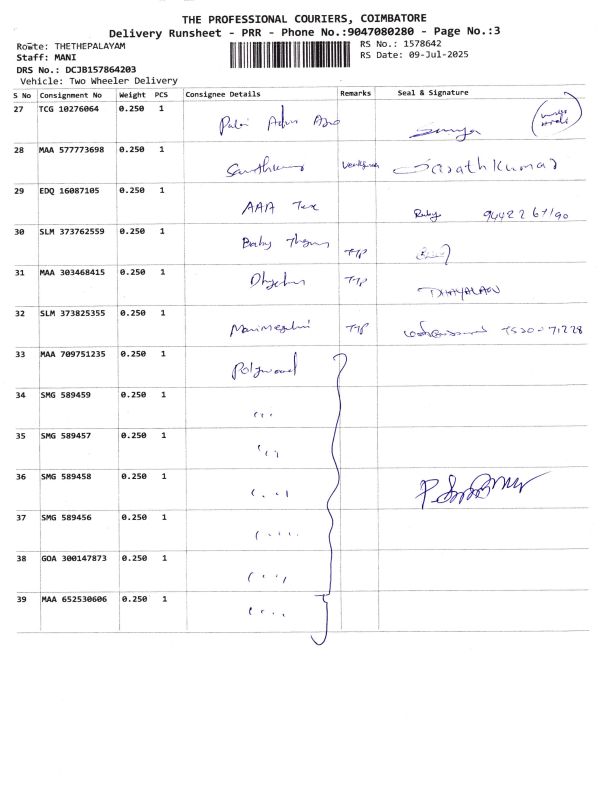 THE PROFESSIONAL COURIERS, COIMBATORE
Delivery Runsheet - PRR - Phone No.:9047080280 - Page No.:3
Route: THETHEPALAYAM
RS No.: 1578642
Staff: MANI
RS Date: 09-Jul-2025
DRS No.: DCJB157864203
Vehicle: Two Wheeler Delivery
S No Consignment No Weight PCS Consignee Details Remarks Seal & Signature
27 TCG 10276064 0.250 1
28 MAA 577773698 0.250 1 SarathKumar
29 EDQ 16087105 0.250 1 AAA Tex Ruby
30 SLM 373762559 0.250 1 Baby TTP
31 MAA 303468415 0.250 1 TTP DHAYALAN
32 SLM 373825355 0.250 1 TTP
33 MAA 709751235 0.250 1
34 SMG 589459 0.250 1
35 SMG 589457 0.250 1
36 SMG 589458 0.250 1
37 SMG 589456 0.250 1
38 GOA 300147873 0.250 1
39 MAA 652530606 0.250 1